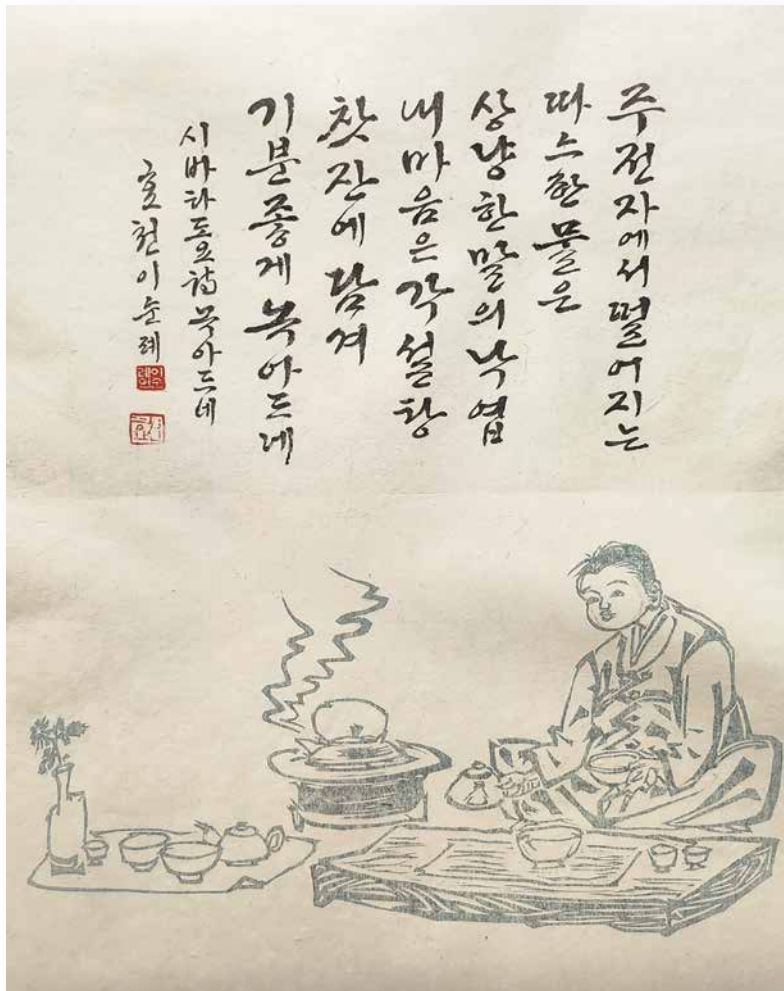 주전자에서 떨어지는
따스한 물은
상냥한 말의 낙엽
내 마음은 각설탕
찻잔에 담겨
기분좋게 녹아드네
시바타 도요 詩 녹아드네
효천 이순례